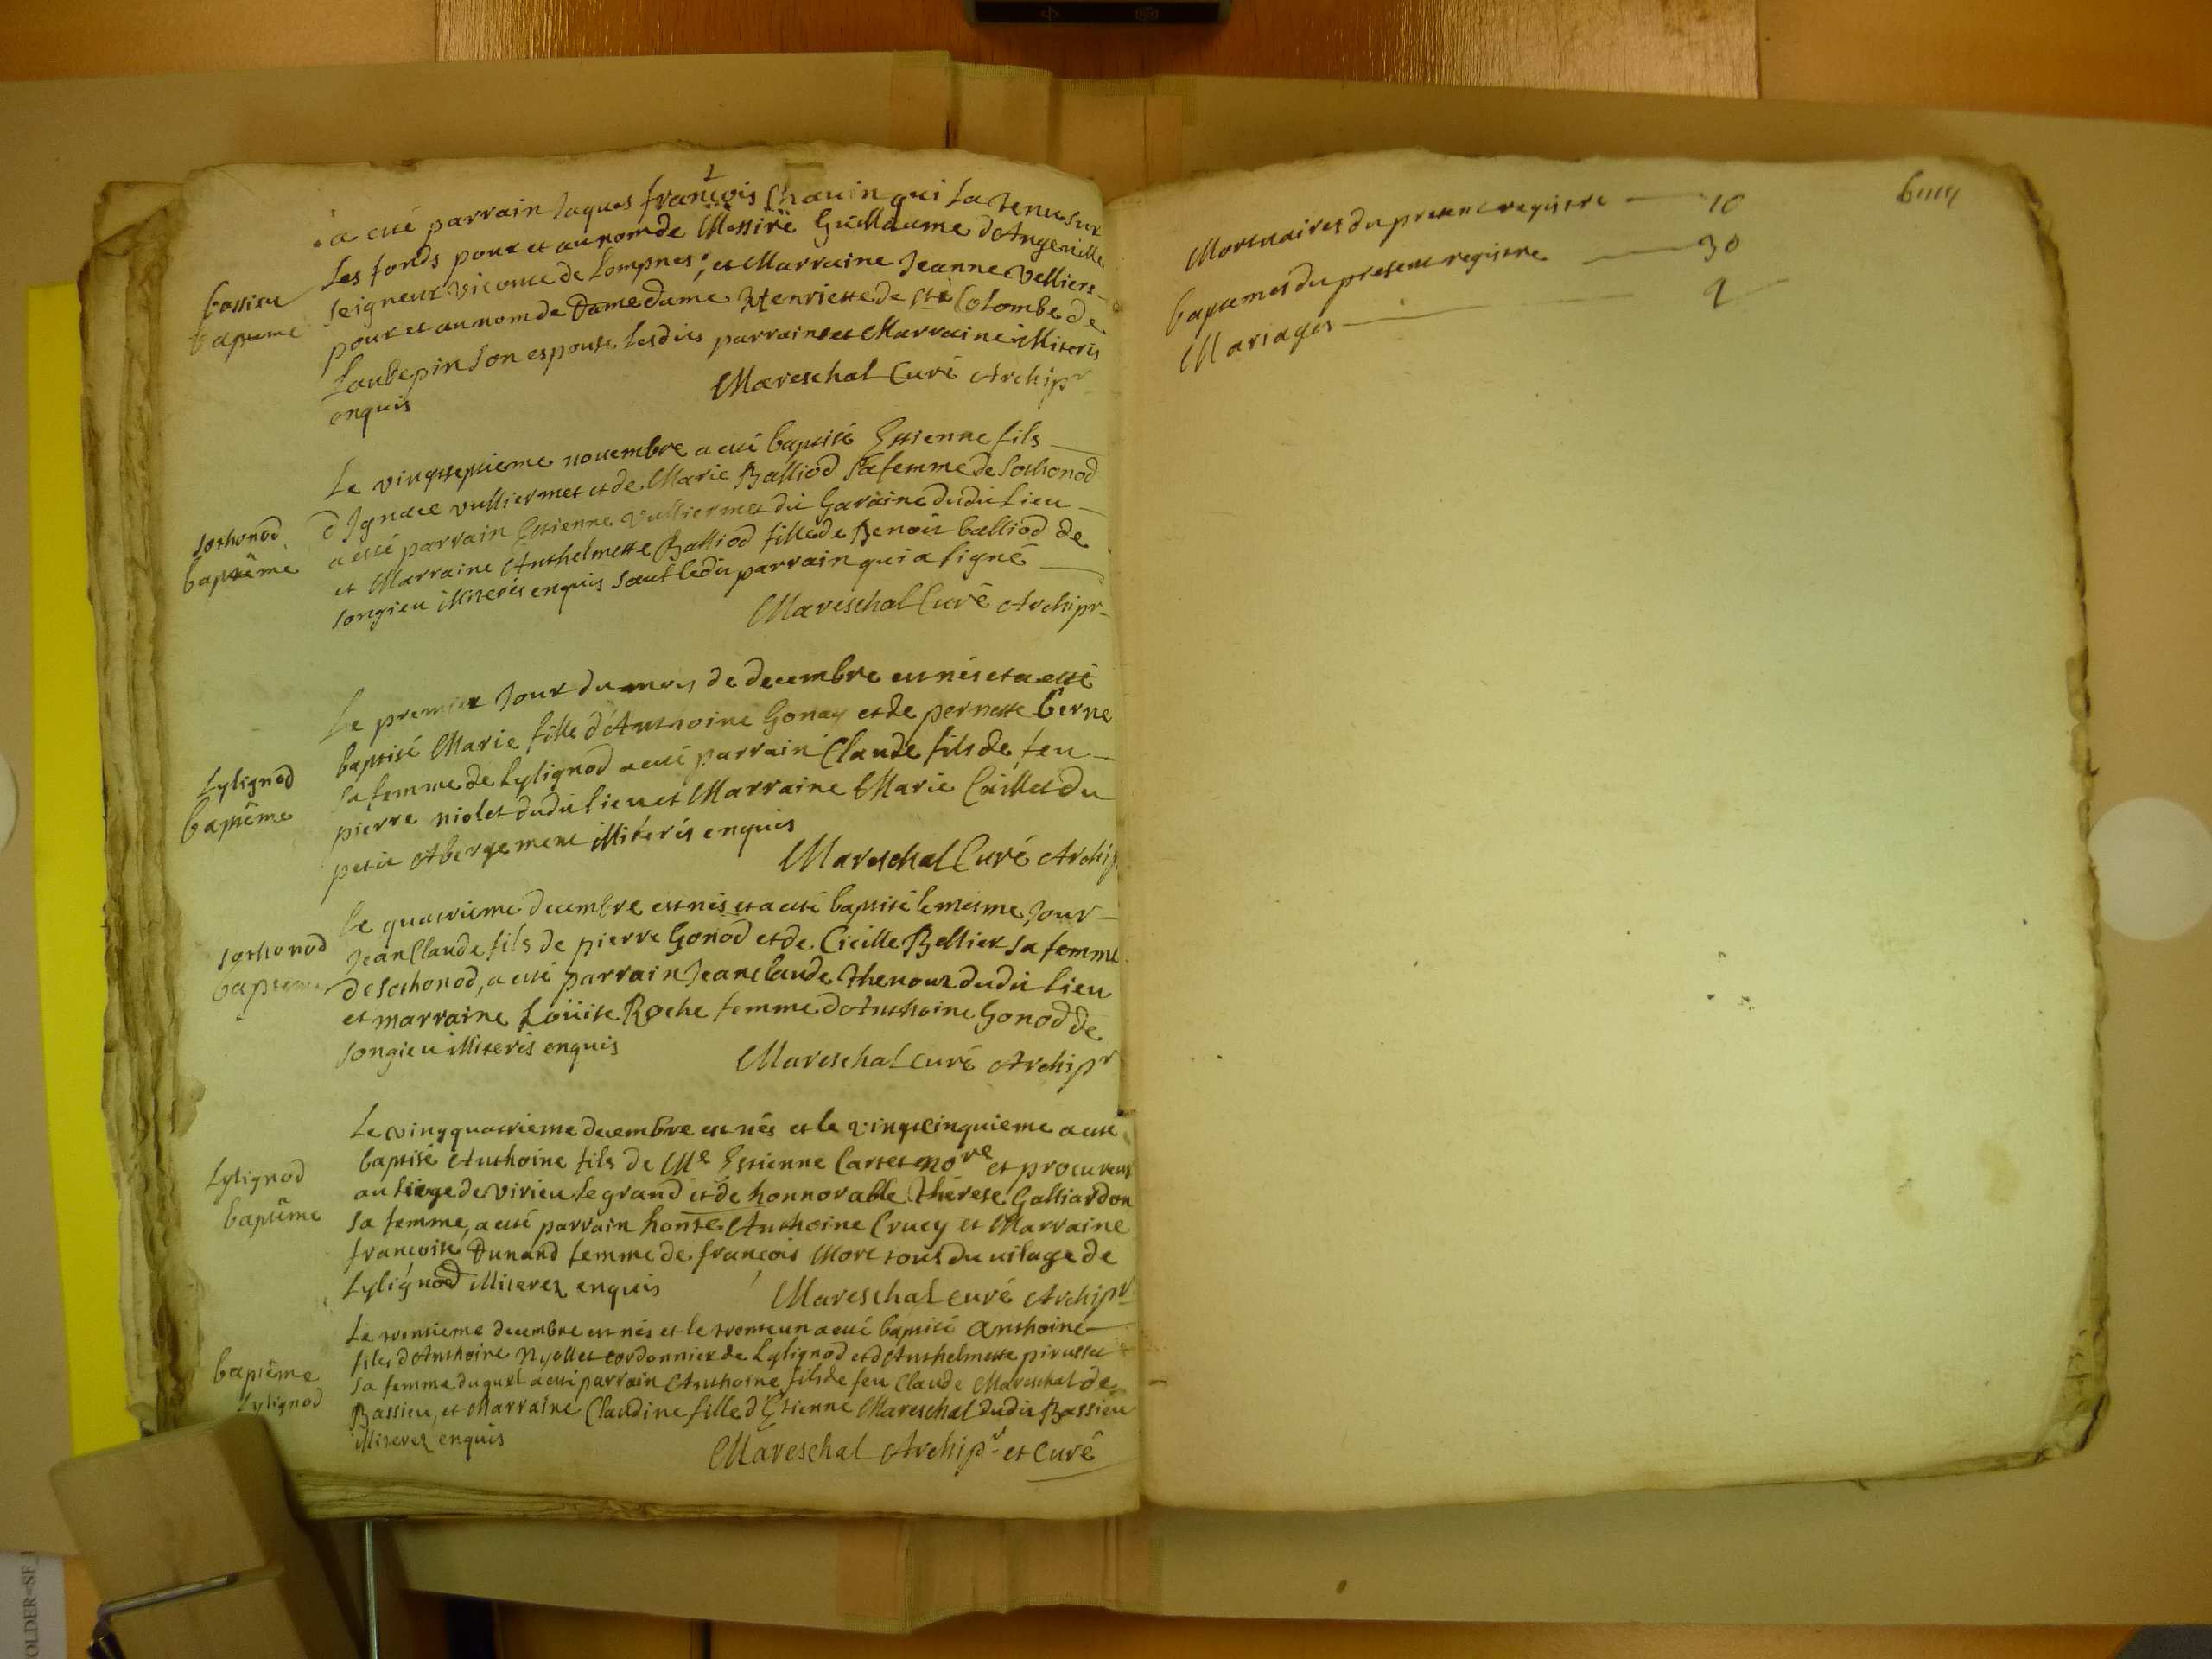 a esté parrain Jaques françois Chauin qui la tenu sur
les fonds pour et au nom de Messire Guillaume d'Angeville
bassieu
bapteme
seigneur vicomte de Lompnes, et Marraine Jeanne Velliers
pour et au nom de Dame dame Henriette de Ste Colombe de
Laubepin son espouse lesdits parrain et Marraine illiterés
enquis
Mareschal Curé Archipr
Le vingtseptieme nouembre a esté baptisé Estienne fils
sothonod
baptême
d'Ignace vulliermet et de Marie Balliod sa femme de Sothonod
a esté parrain Estienne Vulliermet dit Garaine dudit Lieu
et Marraine Anthelmette Balliod fille de Benoit balliod de
songieu illiterés enquis sauf ledit parrain qui a signé
Mareschal Curé Archipr
Le premier Jour du mois de decembre est nés et a esté
baptisé Marie fille d'Anthoine Gonay et de pernette berne
Lylignod
baptême
sa femme de Lylignod a esté parrain Claude fils de feu
pierre niolet dudit lieu et Marraine Marie Caillet du
petit Abergement illiterés enquis
Mareschal Curé Archip
Le quatrieme decembre est nés et a esté baptisé le mesme Jour
sothonod
bapteme
Jean Claude fils de pierre Gonod et de Cicille Bellier sa femme
de Sothonod, a esté parrain Jean claude thenour dudit lieu
et marraine Loüise Roche femme d'Anthoine Gonod de
songieu illiterés enquis
Mareschal curé Archipr
Le vingquatrieme decembre est nés et le vingtcinquieme a esté
Lylignod
baptême
baptisé Anthoine fils de Me Estienne Cartet nore et procureur
au siege de virieu le grand et de honnorable thérese Galliardon
sa femme, a esté parrain honte Anthoine Crucy et Marraine
francoise Dunand femme de francois More tous du uilage de
Lylignod illiterez enquis
Mareschal curé Archipr
Le trentieme decembre est nés et le trenteun a esté baptisé Anthoine
baptême
Lylignod
fils d'Anthoine Nyollet cordonnier de Lylignod et d'Anthelmette pirusset
sa femme duquel a esté parrain Anthoine fils de feu Claude Mareschal de
Bassieu, et Marraine Claudine fille d'Estienne Mareschal dudit Bassieu
illiterez enquis
Mareschal Archipr et Curé
Mortuaires du present registre 10
baptemes du present registre 30
Mariages 2